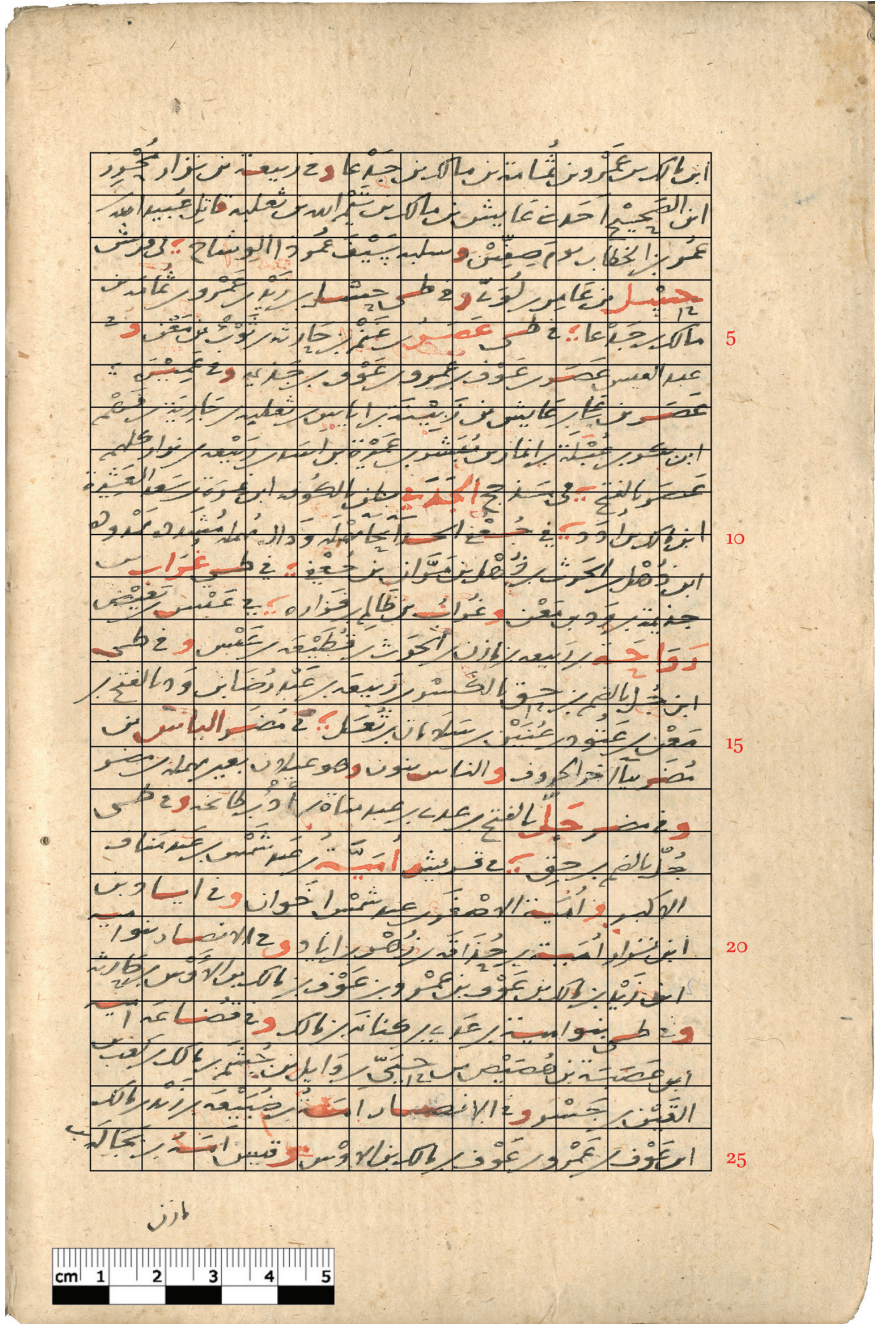 ابن مالك بن عَمْرو بن ثُمامة بن مالك بن جَدْعا وفي ربيعة بن نزار مُحْرِز
ابن الصَحصَح احد بني عَايش بن مالك بن تَيْم الله بن ثعلبه قاتل عُبيد الله بن
عمر بن الخطاب يوم صِفّيْن وسلبه سَيْفَ عُمَر ذا الوشاح في قريش
حِسْل بن عَامِر بن لُوَىّ وفي طيى حِسْل بن زيد بن عَمْرو بن ثُمامة بن
مالك بن جَدْعا في طيى عَصَر بن غَنْم بن حَارثه بن ثَوْب بن مَعْن وفي
عبد القيس عَصَر بن عَوْف بن عَمرو بن عَوْف بن جَذيمه وفي عَمِيْرَة
عَصَر بن عَايش بن زَبِيْنَة بن اياس بن ثعلبه بن جارية بن فَهْم
ابن بكر بن عُبْلَة بن انمار بن مُبَشّر بن عَمِيْرَة بن اسد بن رَبيْعه بن نزار كلهم
عَصَر بالفتح في مَذحج الجَدَّ بطن بالكوفه ابن سَعد العَشِيْرة
ابن مالك بن اُدَد في جُعْفى الحدَّا بحا مهمله ودال مهمله مشدده ممدوده
ابن ذُهْل بن الحَرث بن ذُهْل بن مَرَّان بن جُعْفي في طيى غُرَاب بن
جذيمه بن وَدّ بن مَعْن وغُرابُ بن ظالم بن فزاره في عَبْس بن بَغِيْض
رَوَاحَه بن ربيعه بن مازن بن الحَرث بن قُطَيْعَه بن عَبْس وفي طيى
ابن جُلّ بالضم بن حِق بالكسر بن رَبيعه بن عَبْد رُضا بن وَدّ بالفتح بن
مَعْن بن عَتُود بن عُنَيْن بن سَلامان بن ثُعَل في مُضَر الياس بن
مُضَر بيآ اخر الحروف والناس بنون وهو عيلان بعين مهمله بن مضر
وفي مضر جَلّ بالفتح بن عدى بن عبد مناة بن اُدّ بن طابخه وفي طيى
جُلّ بالضم بن حِق في قريش اُمَيَّة بن عَبد شَمْس بن عَبد مَنَاف
الاكبر واُمَيّة الاصْغَر بن عبد شمس اخَوان وفي اياد بن
ابن نزار اُمَيّة بن حُذَافَه بن زُهْر بن اياد وفي الانصار بنو اميه
ابن زَيْد بن مالك بن عَوْف بن عَمْرو بن عَوْف بن مالك بن الاَوْس بن حَارثه
وفي طيى بنو اُميّة بن عَدى بن كنانه بن مالك وفي قُضاعَه اُميّه
ابن عَصَبَة بن هُصَيْص بن حُيَيّ بن وَايل بن جُشَم بن مالك بن كعب بن
القَيْن بن جَسْر وفي الانصار اَمَةُ بن ضُبَيْعَه بن زَيْد بن مالك
ابن عَوْف بن عَمْرو بن عَوْف بن مالك بن الاَوْس وفي قيس اَمَةُ بن بَجَالَة بن
مازن
5
10
15
20
25
cm 1 2 3 4 5